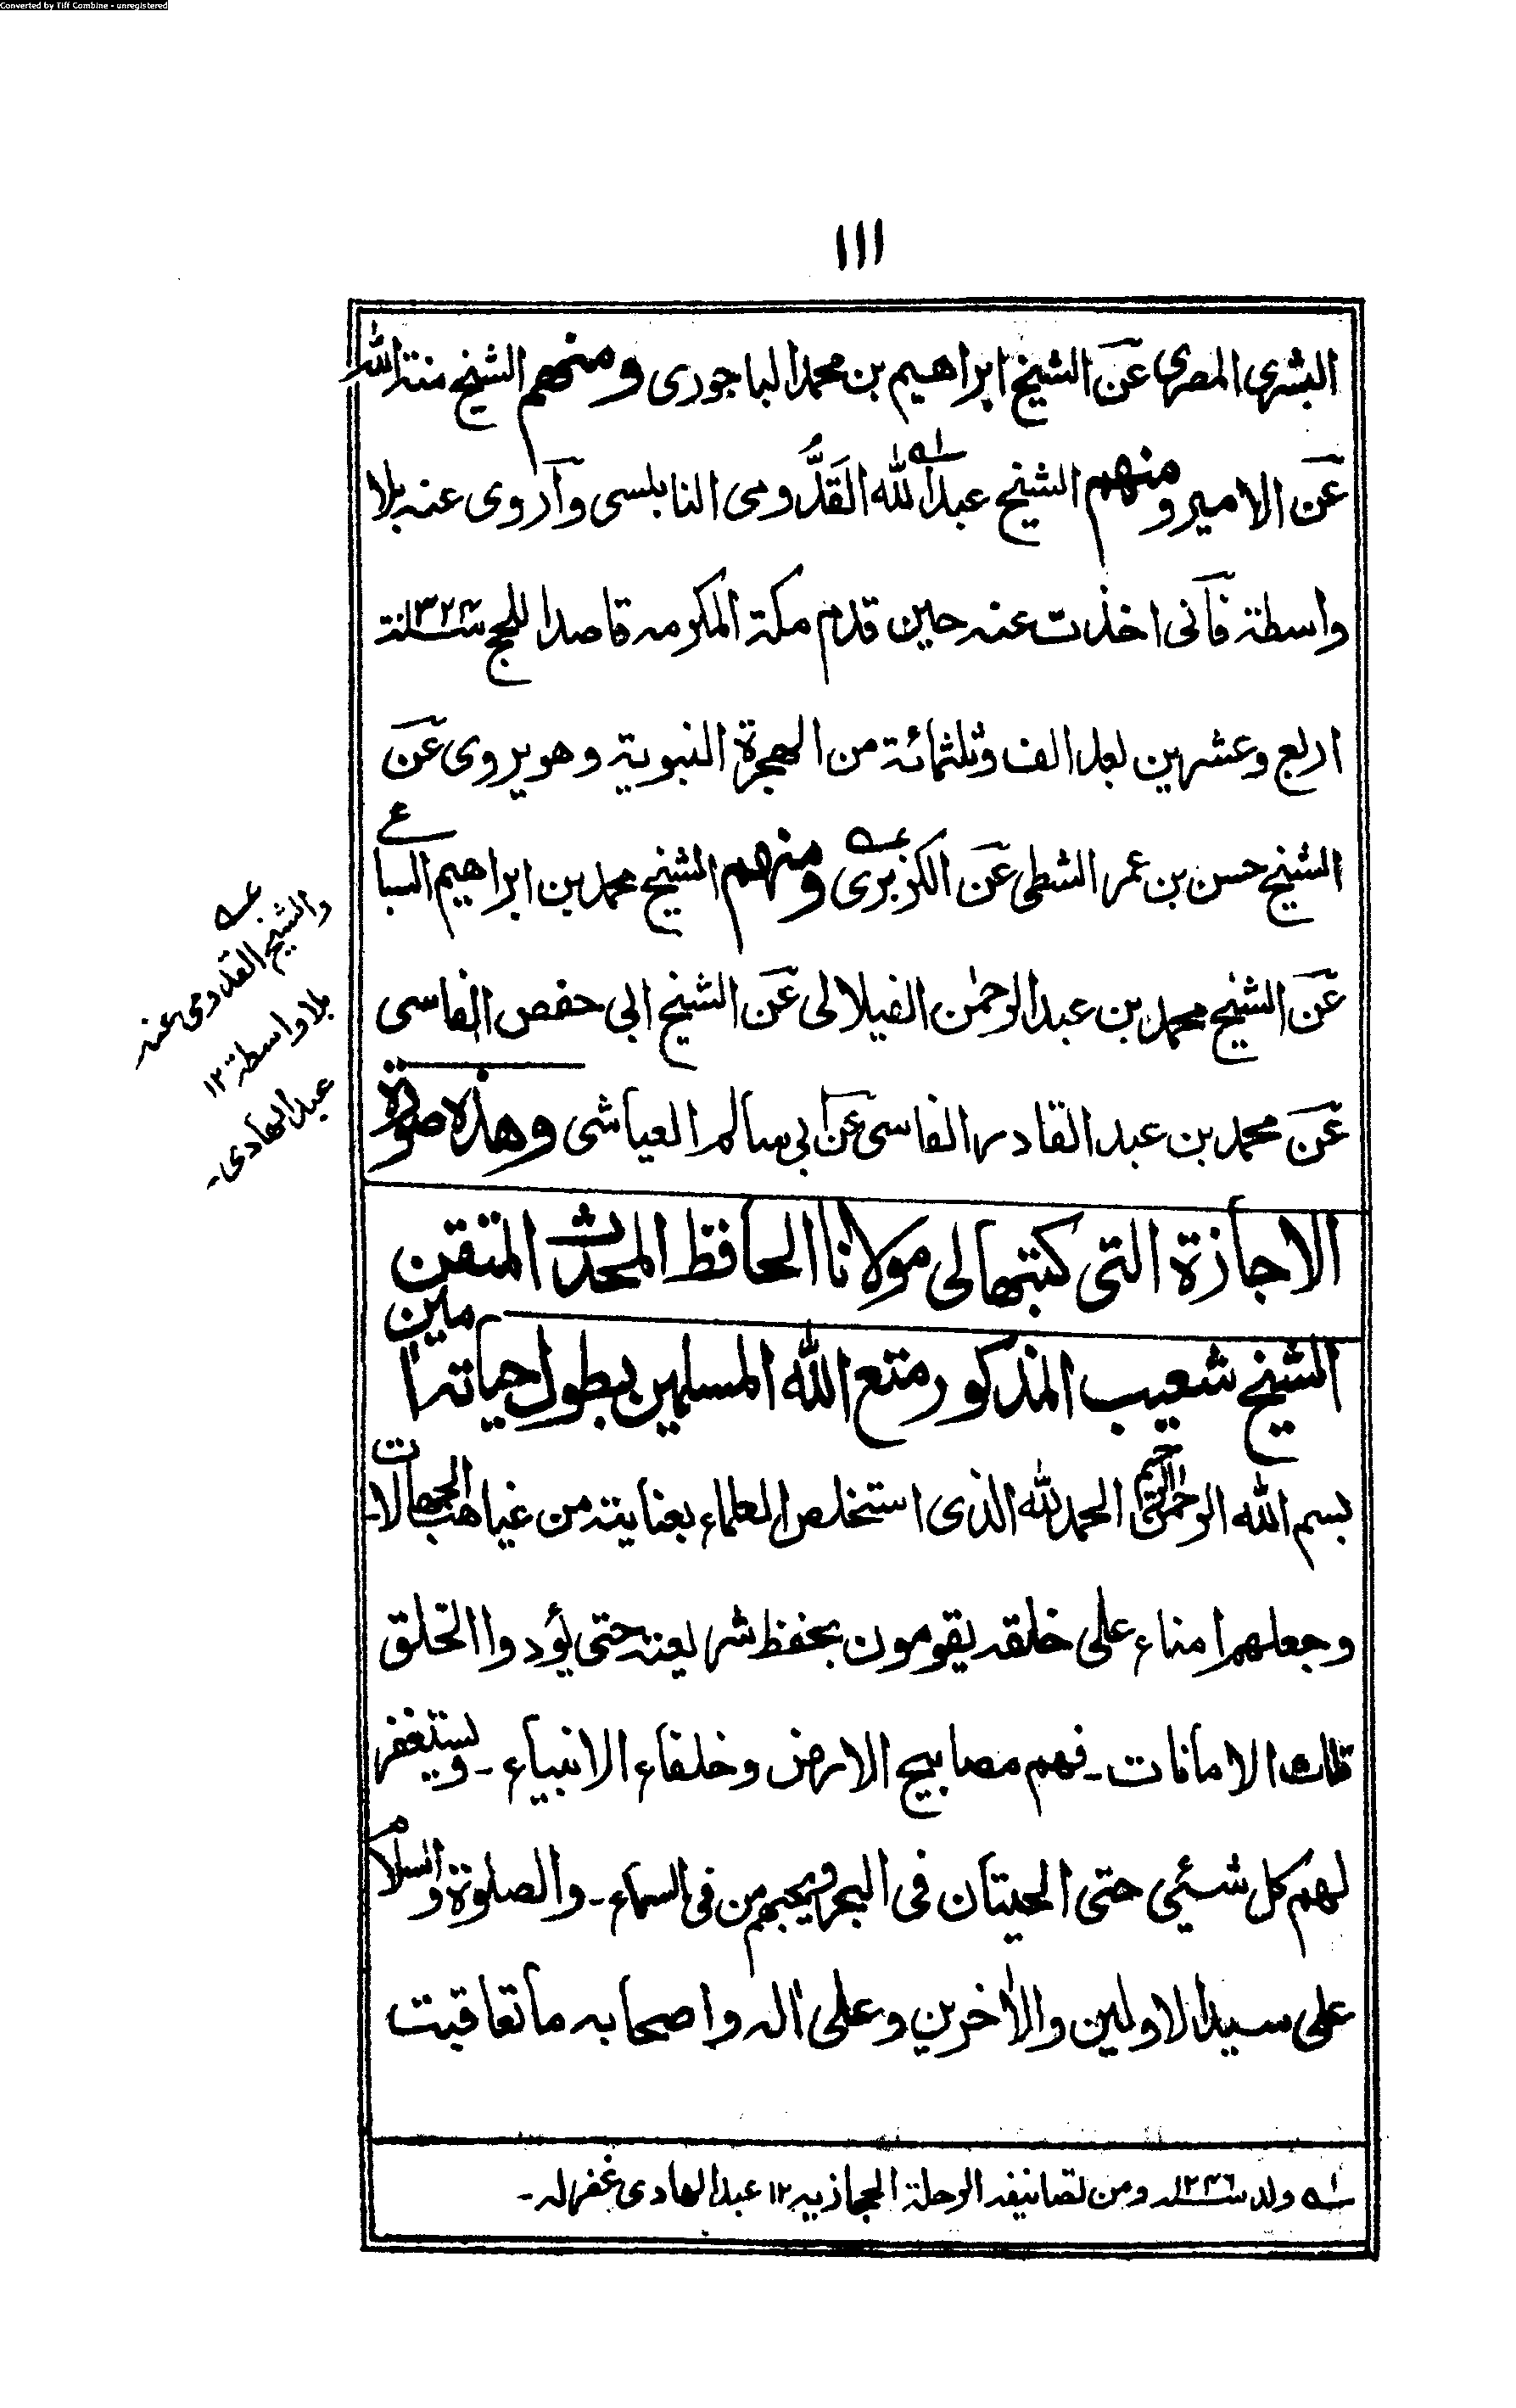 Converted by Tiff Combine - unregistered
١١١
البشرى المصرى عن الشيخ ابراهيم بن محمد الباجورى ومنهم الشيخ منة الله
عن الامير ومنهم الشيخ عبد الله القَدُّومى النابلسى وآروى عنه بلا
واسطة فآنى اخذت عنه حين قدم مكة المكرمه قاصدا للحج سنة ١٣٢٤
اربع وعشرين بعد الف وثلثمائة من الهجرة النبوية وهو يروى عن
الشيخ حسن بن عمر الشطى عن الكزبرى ومنهم الشيخ محمد بن ابراهيم السباعى
عن الشيخ محمد بن عبد الرحمٰن الفيلالى عن الشيخ ابى حفص الفاسى
عن محمد بن عبد القادر الفاسى عن ابى سالم العياشى وهذه صورة
الاجازة التى كتبها لى مولانا الحافظ المحدث المتقن
الشيخ شعيب المذكور متع الله المسلمين بطول حياته اٰمين
بسم الله الرحمٰن الرحيم الحمد لله الذى استخلص العلماء بعنايته من غياهب الجهالات
وجعلهم امناء على خلقه يقومون بحفظ شريعته حتى يؤدوا الخلق
تلك الامانات ـ فهم مصابيح الارض وخلفاء الانبياء ـ ويستغفر
لهم كل شيئ حتى الحيتان فى البحر ويحبهم من فى السماء ـ والصلوة والسلام
على سيد الاولين والاٰخرين وعلى اله واصحابه ما تعاقبت
والشيخ القدومى عنه
بلا واسطة ١٢
عبد الهادى ـ
١ه ولد سنه ١٢٤٦ ومن تصانيفه الرحلة الحجازيه ١٢ عبد الهادى غفر له ـ